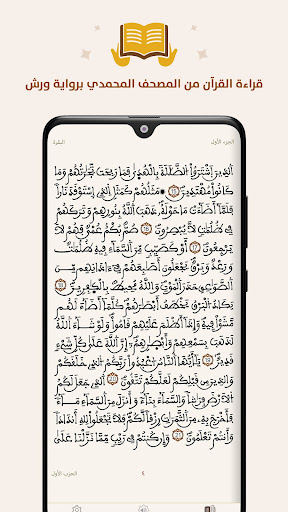 قراءة القرآن من المصحف المحمدي برواية ورش
الجزء الأول البقرة
اَ۬لذِينَ اَ۪شْتَرَوُاْ اُ۬لضَّلَٰلَةَ بِالْهُد۪ىٰ فَمَا رَبِحَت تِّجَٰرَتُهُمْ وَمَا
كَانُواْ مُهْتَدِينَۖ 15 مَثَلُهُمْ كَمَثَلِ اِ۬لذِے اِ۪سْتَوْقَدَ نَاراٗ
فَلَمَّآ أَضَآءَتْ مَا حَوْلَهُۥ ذَهَبَ اَ۬للَّهُ بِنُورِهِمْ وَتَرَكَهُمْ
فِے ظُلُمَٰتٖ لَّا يُبْصِرُونَۖ 16 صُمُّۢ بُكْمٌ عُمْيٞ فَهُمْ لَا
يَرْجِعُونَۖ 17 أَوْ كَصَيِّبٖ مِّنَ اَ۬لسَّمَآءِ فِيهِ ظُلُمَٰتٞ
وَرَعْدٞ وَبَرْقٞ يَجْعَلُونَ أَصَٰبِعَهُمْ فِےٓ ءَاذَانِهِم مِّنَ
اَ۬لصَّوَٰعِقِ حَذَرَ اَ۬لْمَوْتِۖ وَاللَّهُ مُحِيطُۢ بِالْكٰ۪فِرِينَۖ 18
يَكَادُ اُ۬لْبَرْقُ يَخْطَفُ أَبْصَٰرَهُمْ كُلَّمَآ أَضَآءَ لَهُم
مَّشَوْاْ فِيهِۖ وَإِذَآ أَظْلَمَ عَلَيْهِمْ قَامُواْۖ وَلَوْ شَآءَ اَ۬للَّهُ
لَذَهَبَ بِسَمْعِهِمْ وَأَبْصٰ۪رِهِمُۥٓۖ إِنَّ اَ۬للَّهَ عَلَىٰ كُلِّ شَےْءٖ
قَدِيرٞۖ 19 يَٰٓأَيُّهَا اَ۬لنَّاسُ اُ۟عْبُدُواْ رَبَّكُمُ اُ۬لذِے خَلَقَكُمْ
وَالذِينَ مِن قَبْلِكُمْ لَعَلَّكُمْ تَتَّقُونَ 20 اَ۬لذِے جَعَلَ لَكُمُ
اُ۬لَارْضَ فِرَٰشاٗ وَالسَّمَآءَ بِنَآءٗ وَأَنزَلَ مِنَ اَ۬لسَّمَآءِ مَآءٗ
فَأَخْرَجَ بِهِۦ مِنَ اَ۬لثَّمَرَٰتِ رِزْقاٗ لَّكُمْۖ فَلَا تَجْعَلُواْ لِلهِ أَندَاداٗ
وَأَنتُمْ تَعْلَمُونَۖ 21 وَإِن كُنتُمْ فِے رَيْبٖ مِّمَّا نَزَّلْنَا عَلَىٰ
٤ الحزب الأول